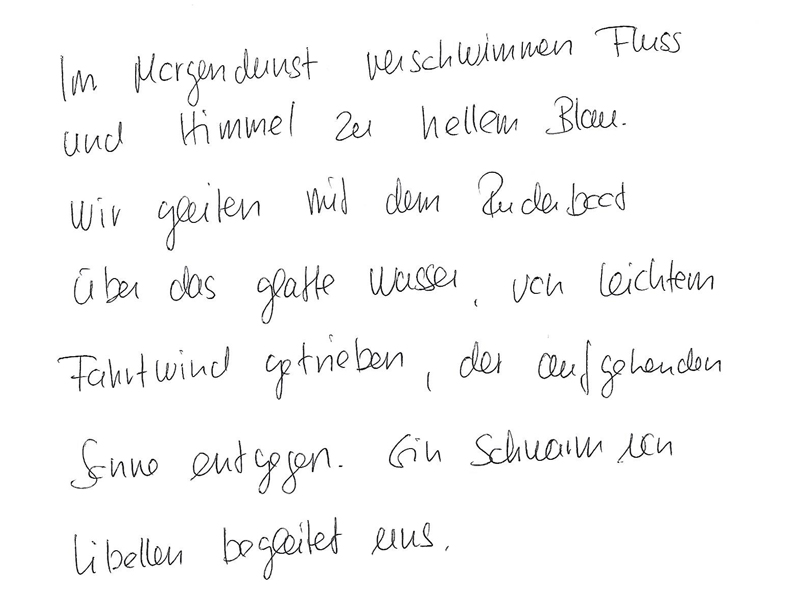 Im Morgendunst verschwimmen Fluss
und Himmel zu hellem Blau.
Wir gleiten mit dem Ruderboot
über das glatte Wasser, von leichtem
Fahrtwind getrieben, der aufgehenden
Sonne entgegen. Ein Schwarm von
Libellen begleitet uns.